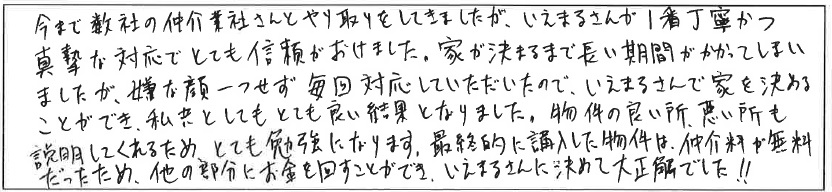 今まで数社の仲介業社さんとやり取りをしてきましたが、いえまるさんが1番丁寧かつ
真摯な対応でとても信頼がおけました。家が決まるまで長い期間がかかってしまい
ましたが、嫌な顔一つせず毎回対応していただいたので、いえまるさんで家を決める
ことができ、私共としてもとても良い結果となりました。物件の良い所、悪い所も
説明してくれるため、とても勉強になります。最終的に購入した物件は、仲介料が無料
だったため、他の部分にお金を回すことができ、いえまるさんに決めて大正解でした!!